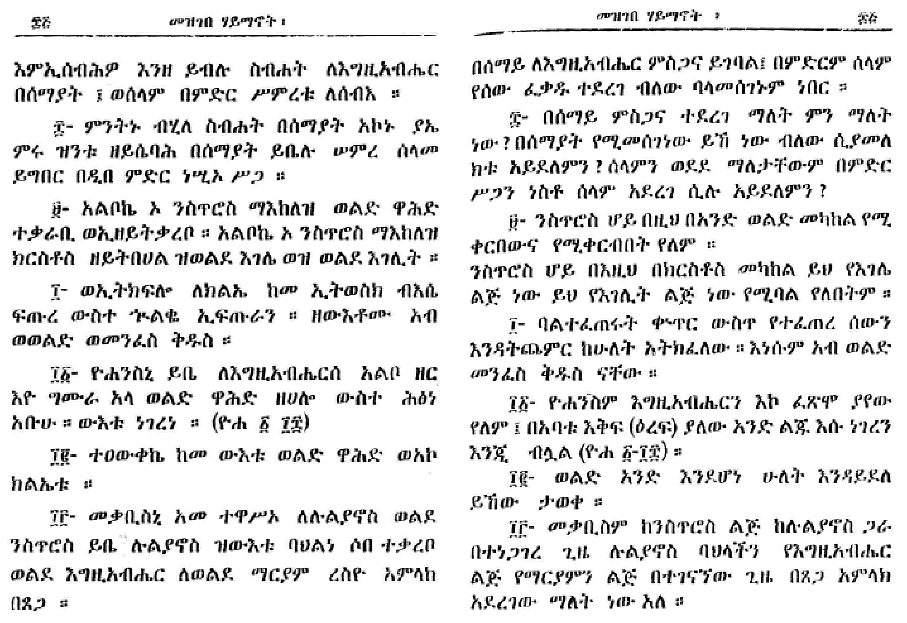 ፷፭ መዝገበ ሃይማኖት ፡
እምኢሰብሕዎ እንዘ ይብሉ ስብሐት ለእግዚአብሔር
በሰማያት ፤ ወሰላም በምድር ሥምረቱ ለሰብእ ።
፰- ምንትኑ ብሂለ ስብሐት በሰማያት አኮኑ ያኤ
ምሩ ዝንቱ ዘይሴባሕ በሰማያት ይቤሉ ሠምረ ሰላመ
ይግበር በዲበ ምድር ነሢኦ ሥጋ ።
፱- አልቦኬ ኦ ንስጥሮስ ማእከለዝ ወልድ ዋሕድ
ተቃራቢ ወኢዘይትቃረቦ ። አልቦኬ ኦ ንስጥሮስ ማእከለዝ
ክርስቶስ ዘይትበሀል ዝወልደ እገሌ ወዝ ወልደ እገሊት ።
፲- ወኢትክፍሎ ለክልኤ ከመ ኢትወስክ ብእሴ
ፍጡረ ውስተ ኍልቈ ኢፍጡራን ። ዘውእቶሙ አብ
ወወልድ ወመንፈስ ቅዱስ ።
፲፩- ዮሐንስኒ ይቤ ለእግዚአብሔርሰ አልቦ ዘር
እዮ ግሙራ አላ ወልድ ዋሕድ ዘሀሎ ውስተ ሕፅነ
አቡሁ ። ውእቱ ነገረነ ። (ዮሐ ፩ ፲፰)
፲፪- ተዐውቀኬ ከመ ውእቱ ወልድ ዋሕድ ወአኮ
ክልኤቱ ።
፲፫- መቃቢስኒ አመ ተዋሥኦ ለሉልያኖስ ወልደ
ንስጥሮስ ይቤ ሉልያኖስ ዝውእቱ ባህልነ ሶበ ተቃረቦ
ወልደ እግዚአብሔር ለወልደ ማርያም ረስዮ አምላከ
በጸጋ ።
መዝገበ ሃይማኖት ፡ ፷፭
በሰማይ ለእግዚአብሔር ምስጋና ይገባል፤ በምድርም ሰላም
የሰው ፈቃዱ ተደረገ ብለው ባላመሰገኑም ነበር ።
፰- በሰማይ ምስጋና ተደረገ ማለት ምን ማለት
ነው ? በሰማያት የሚመሰገነው ይኸ ነው ብለው ሲያመለ
ክቱ አይደለምን ? ሰላምን ወደደ ማለታቸውም በምድር
ሥጋን ነስቶ ሰላም አደረገ ሲሉ አይደለምን ?
፱- ንስጥሮስ ሆይ በዚህ በአንድ ወልድ መካከል የሚ
ቀርበውና የሚቀርብበት የለም ።
ንስጥሮስ ሆይ በእዚህ በክርስቶስ መካከል ይህ የእገሌ
ልጅ ነው ይህ የእገሊት ልጅ ነው የሚባል የለበትም ።
፲- ባልተፈጠሩት ቍጥር ውስጥ የተፈጠረ ሰውን
እንዳትጨምር ከሁለት አትክፈለው ። እነሱም አብ ወልድ
መንፈስ ቅዱስ ናቸው ።
፲፩- ዮሐንስም እግዚአብሔርን እኮ ፈጽሞ ያየው
የለም ፤ በአባቱ እቅፍ (ዕረፍ) ያለው አንድ ልጁ እሱ ነገረን
እንጂ ብሏል (ዮሐ ፩-፲፰) ።
፲፪- ወልድ አንድ እንደሆነ ሁለት እንዳይደለ
ይኸው ታወቀ ።
፲፫- መቃቢስም ከንስጥሮስ ልጅ ከሉልያኖስ ጋራ
በተነጋገረ ጊዜ ሉልያኖስ ባህላችን የእግዚአብሔር
ልጅ የማርያምን ልጅ በተገናኘው ጊዜ በጸጋ አምላክ
አደረገው ማለት ነው አለ ።